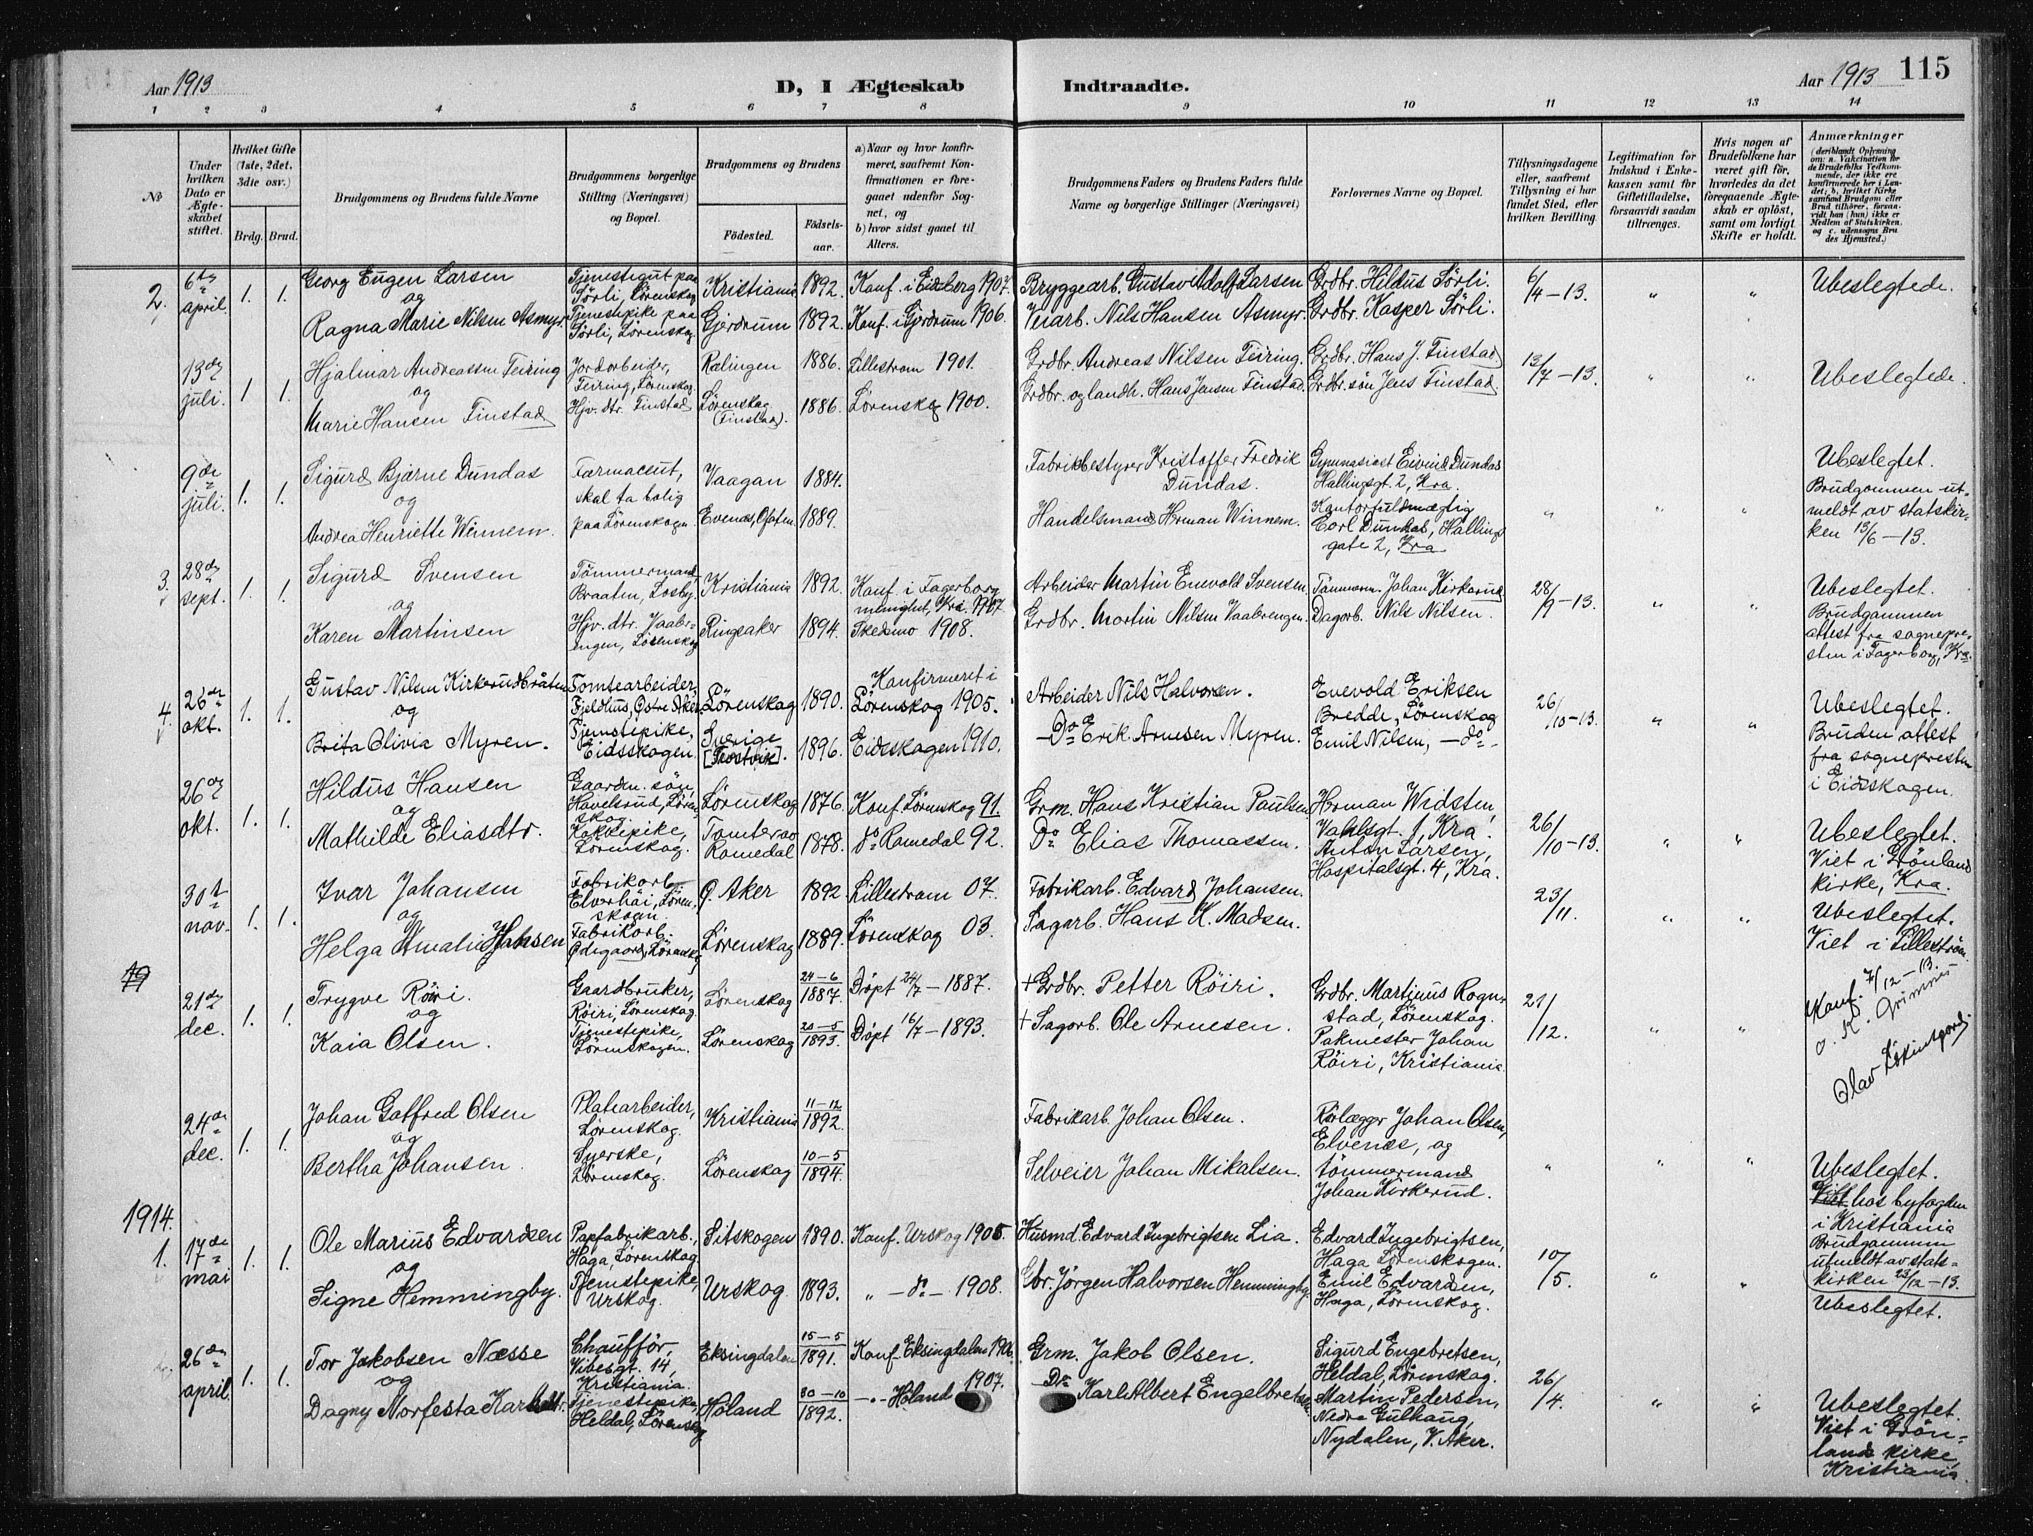 Aar 1913
D, I Ægteskab Indtraadte.
Aar 1913 115
1 2 3 4 5 6 7 8 9 10 11 12 13 14
No
Under hvilken Dato er Ægteskabet stiftet.
Hvilket Gifte (1ste, 2det. 3die osv.)
Brdg. Brud.
Brudgommens og Brudens fulde Navne
Brudgommens borgerlige Stilling (Næringsvei) og Bopæl.
Brudgommens og Brudens
Fødested. Fødselsaar.
a) Naar og hvor konfirmeret, saafremt Konfirmationen er foregaaet udenfor Sognet, og
b) hvor sidst gaaet til Alters.
Brudgommens Faders og Brudens Faders fulde Navne og borgerlige Stillinger (Næringsvei)
Forlovernes Navne og Bopæl.
Tillysningsdagene eller, saafremt Tillysning ei har fundet Sted, efter hvilken Bevilling.
Legitimation for Indskud i Enkekassen samt for Giftetilladelse, forsaavidt saadan tiltrænges.
Hvis nogen af Brudefolkene har været gift før, hvorledes da det foregaaende Ægteskab er opløst, samt om lovligt Skifte er holdt.
Anmærkninger
(deriblandt Oplysning om: a. Vakcination for de Brudefolks Vedkommende, der ikke ere konfirmerede her i Landet; b. hvilket Kirkesamfund Brudgom eller Brud tilhører, forsaavidt han (hun) ikke er Medlem af Statskirken, og c. udensogns Brudes Hjemsted.)
2. 6te april. 1. 1.
Georg Eugen Larsen
og
Ragna Marie Nilsen Asmyr
Tjenestegut paa Sørli, Lørenskog
Tjenestepike paa Sørli, Lørenskog
Kristiania 1892. Konf. i Eidsberg 1907.
Gjerdrum 1892. Konf. i Gjerdrum 1906.
Bryggearb. Gustav Adolf Larsen
Veiarb. Nils Hansen Asmyr.
Grdbr. Hildus Sørli.
Grdbr. Kasper Sørli.
6/4–13. " " Ubeslegtede.
13de juli. 1 1.
Hjalmar Andreassen Feiring
og
Marie Hansen Finstad
Jordarbeider, Feiring, Lørenskog
Hjv. dtr. Finstad
Rælingen 1886. Lillestrøm 1901.
Lørenskog (Finstad). 1886. Lørenskog 1900.
Grdbr. Andreas Nilsen Feiring.
Grdbr. og landh. Hans Jensen Finstad.
Grdbr. Hans J. Finstad
Grdbr. søn Jens Finstad.
13/7–13. " " Ubeslegtede.
9de juli. 1. 1.
Sigurd Bjarne Dundas
og
Andrea Henriette Winnem.
Farmaceut, skal ta bolig paa Lørenskogen.
Vaagan 1884.
Evenes, Ofoten. 1889.
Fabrikbestyrer Kristoffer Fredrik Dundas.
Handelsmand Herman Winnem.
Gymnasiast Eivind Dundas Hallingsgt. 2, Kra.
Kontorfuldmægtig Carl Dundas, Hallingsgate 2, Kra.
" " "
Ubeslegtet.
Brudgommen utmeldt av statskirken 13/6–13.
3. 28de sept. 1. 1.
Sigurd Svensen
og
Karen Martinsen
Tømmermand Braaten, Losby.
Hjv. dtr. Vaabrengen, Lørenskog
Kristiania 1892. Konf. i Fagerborg menighet, Kra. 1907.
Ringsaker 1894. Skedsmo 1908.
Arbeider Martin Enevold Svensen.
Grdbr. Martin Nilsen Vaabrengen.
Tømmerm. Johan Kirkerud
Dagarb. Nils Nilsen.
28/9–13. " "
Ubeslegtet.
Brudgommen attest fra sognepresten i Fagerborg, Kra.
4. 26de okt. 1. 1.
Gustav Nilsen Kirkerudbråten
og
Brita Olivia Myren.
Tomtearbeider, Fjeldhus, Østre Aker.
Tjenstepike, Eidsskogen
Lørenskog 1890. Konfirmeret i Lørenskog 1905.
Sverige 1896. Eidsskogen 1910.
Arbeider Nils Halvorsen.
–Do Erik Arnesen Myren.
Enevold Eriksen Bredde, Lørenskog
Emil Nilsen, –do–
26/10–13. " "
Ubeslegtet.
Bruden attest fra sognepresten i Eidskogen.
26de okt. 1. 1.
Hildus Hansen
og
Mathilde Eliasdtr.
Gaardm. søn, Havelsrud, Lørenskog
Kokkepike, Lørenskog.
Lørenskog 1876. Konf. Lørenskog 91.
Tomter av Romedal 1878. do Romedal 92.
Grm. Hans Kristian Paulsen
Do Elias Thomassen.
Herman Widsten, Vahlsgt. 1, Kra.
Anton Larsen, Hospitalsgt. 4, Kra.
26/10–13. " "
Ubeslegtet.
Viet i Grönland kirke, Kra.
30te nov. 1. 1.
Ivar Johansen
og
Helga Amalie Hansen
Fabrikarb. Elverhöi, Lørenskogn.
Fabrikarb. Ødegaard, Lørenskog
Ø. Aker 1892 Lillestrøm 07.
Lørenskog 1889. Lørenskog 03.
Fabrikarb. Edvard Johansen.
Sagarb. Hans K. Madsen.
23/11. " "
Ubeslegtet.
Viet i Lillestrøm
21de dec. 1. 1.
Trygve Röiri.
og
Kaia Olsen.
Gaardbruker, Röiri, Lørenskog
Tjenestepike, Lörenskogen.
Lørenskog 24–6 1887. Døpt 24/7–1887.
Lørenskog 20–5 1893. Døpt 16/7–1893.
+Grdbr. Petter Röiri.
+Sagarb. Ole Arnesen.
Grdbr. Martinus Rognstad, Lørenskog.
Pakmester Johan Röiri, Kristiania
21/12. " "
Konf. 7/12–13.
24de dec. 1. 1.
Johan Gotfred Olsen
og
Bertha Johansen.
Platearbeider, Lørenskog.
Syerske, Lørenskog.
Kristiania 11–12 1892.
Lørenskog 10–5 1894.
Fabrikarb. Johan Olsen.
Selveier Johan Mikalsen.
Rørlægger Johan Olsen, Elvenæs, og
tömmermand Johan Kirkerud.
" " "
Ubeslegtet.
Viet hos byfogden i Kristiania
Brudgommen utmeldt av statskirken 23/12–13.
1914.
1. 17de mai 1. 1.
Ole Marius Edvardsen
og
Signe Hemmingby.
Papfabrikarb., Haga, Lørenskog
Tjenstepike, Urskog.
Sitskogen 1890. Konf. Urskog 1905.
Urskog 1893. " –do– 1908.
Husmd. Edvard Ingebrigtsen Lia.
Gbr. Jörgen Halvorsen Hemmingby.
Edvard Ingebrigtsen, Haga Lørenskogen.
Emil Edvardsen, Haga, Lørenskog.
10/5. " "
Ubeslegtet.
26de april. 1. 1.
Tor Jakobsen Næsse
og
Dagny Norfesta Karlsdtr.
Chaufför, Vibesgt. 14, Kristiania.
Tjenestepike, Heldal, Lørenskog
Eksingdalen 15–5 1891. Konf. Eksingdalen 1906.
Høland 30–10 1892. –"– Høland 1907.
Grm. Jakob Olsen.
–Do– Karl Albert Engelbretsen
Sigurd Engebretsen, Heldal, Lørenskog.
Martin Pedersen, Nedre Gulhaug, Nydalen, V. Aker.
26/4. " "
Ubeslegtet.
Viet i Grönlands kirke, Kristiania.